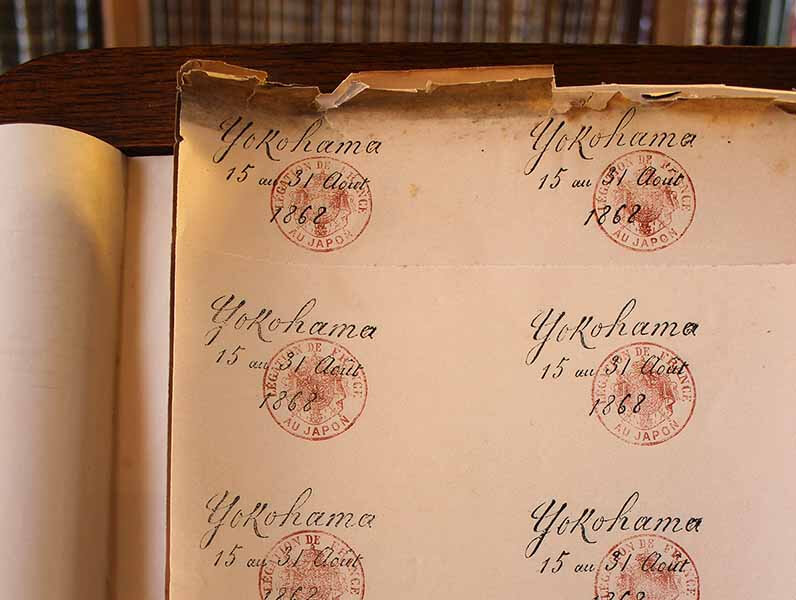 Yokohama
15 au 31 Août
1868
LÉGATION DE FRANCE
AU JAPON
Yokohama
15 au 31 Août
1868
LÉGATION DE FRANCE
AU JAPON
Yokohama
15 au 31 Août
1868
LÉGATION DE FRANCE
AU JAPON
Yokohama
15 au 31 Août
1868
LÉGATION DE FRANCE
AU JAPON
Yokohama
15 au 31 Août
1868
LÉGATION DE FRANCE
Yokohama
15 au 31 Août
1868
LÉGATION DE FRANCE